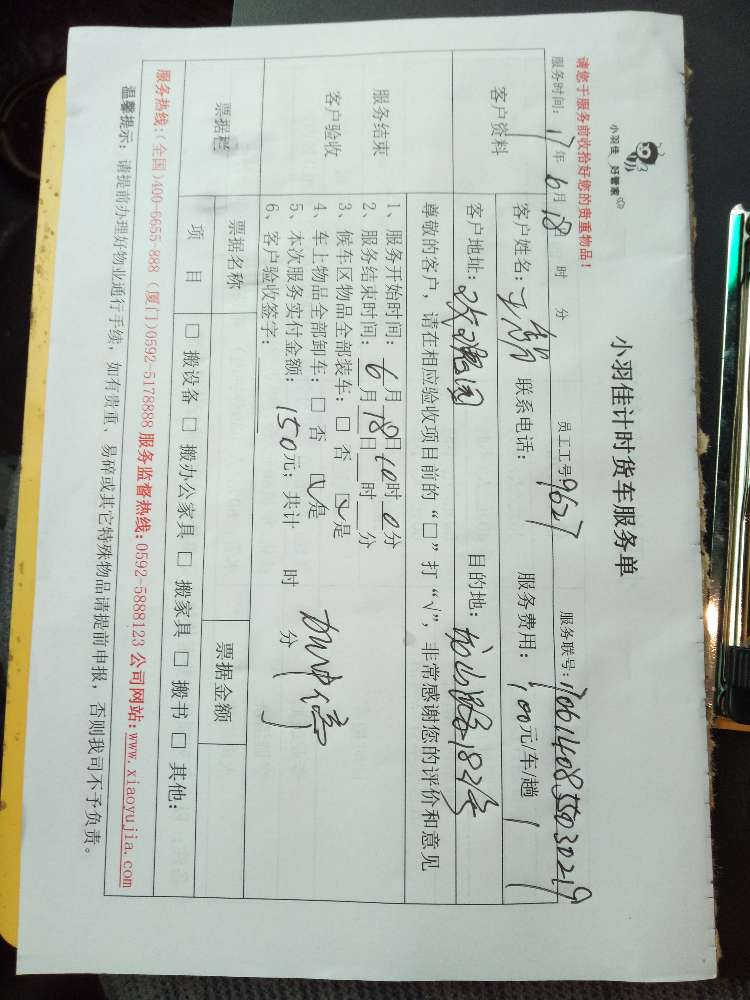 小羽佳 好管家
小羽佳计时货车服务单
请您于服务前收拾好您的贵重物品！
服务时间：17年6月18日 时 分 员工工号9627 服务联号：
客户资料
客户姓名： 联系电话： 服务费用：100元/车/趟
客户地址： 目的地：
尊敬的客户，请在相应验收项目前的“□”打“√”，非常感谢您的评价和意见
服务结束
客户验收
1、服务开始时间：6月18日10时0分
2、服务结束时间：__月__日__时__分
3、候车区物品全部装车：□ 否 ☑是
4、车上物品全部卸车：□ 否 ☑是
5、本次服务实付金额：150元；共计 时 分
6、客户验收签字：
票据栏
票据名称 票据金额
项 目 □ 搬设备 □ 搬办公家具 □ 搬家具 □ 搬书 □ 其他：
服务热线：（全国）400-6655-888（厦门）0592-5178888 服务监督热线：0592-5888123 公司网站：www.xiaoyujia.com
温馨提示：请提前办理好物业通行手续，如有贵重、易碎或其它特殊物品请提前申报，否则我司不予负责。